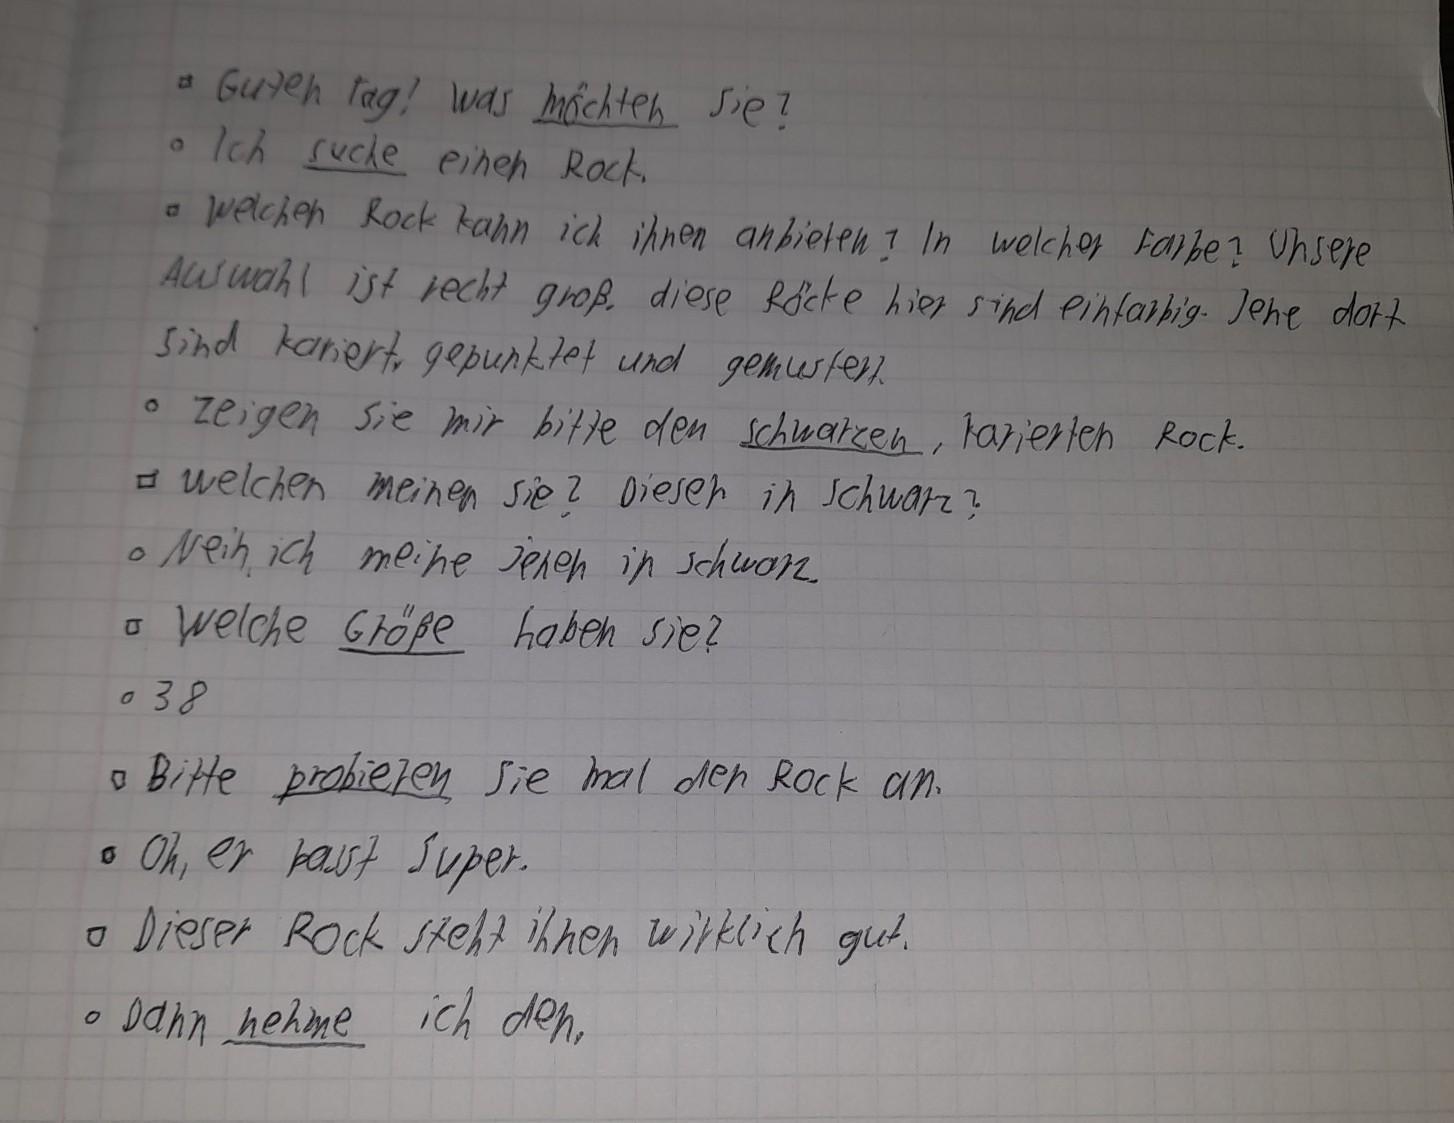 ▫ Guten Tag! Was möchten Sie?
◦ Ich suche einen Rock.
▫ Welchen Rock kann ich ihnen anbieten? In welcher Farbe? Unsere
Auswahl ist recht groß. diese Röcke hier sind einfarbig. Jene dort
sind kariert, gepunktet und gemustert.
◦ Zeigen Sie mir bitte den schwarzen, karierten Rock.
▫ Welchen meinen Sie? Diesen in schwarz?
◦ Nein, ich meine jenen in schwarz.
▫ Welche Größe haben sie?
◦ 38
▫ Bitte probieren Sie mal den Rock an.
◦ Oh, er passt super.
▫ Dieser Rock steht ihnen wirklich gut.
◦ Dann nehme ich den.